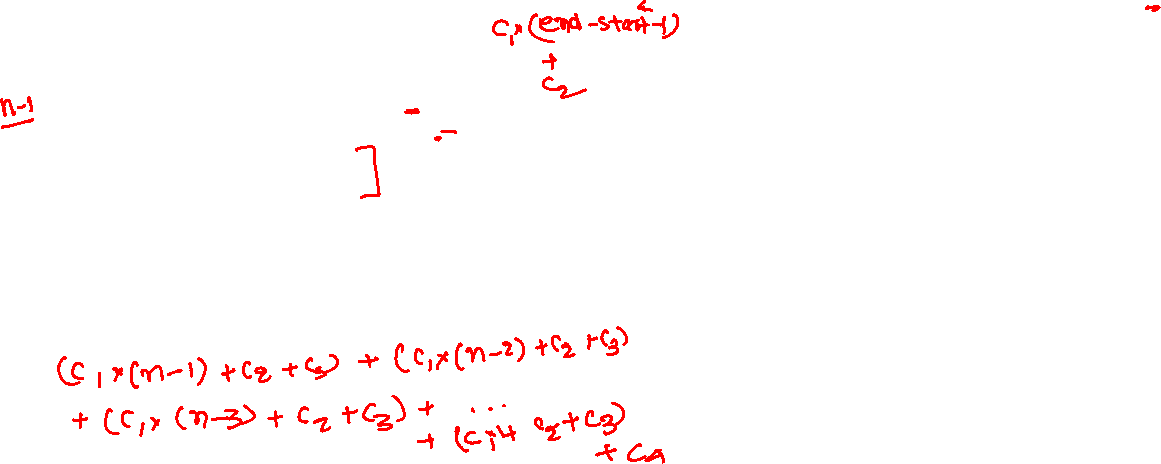 C₁×(end-start-1)
+
C₂
n-1
]
(C₁×(n-1)+C₂+C₃)+(C₁×(n-2)+C₂+C₃)
+(C₁×(n-3)+C₂+C₃)+...
+(C₁×1+C₂+C₃)
+C₄